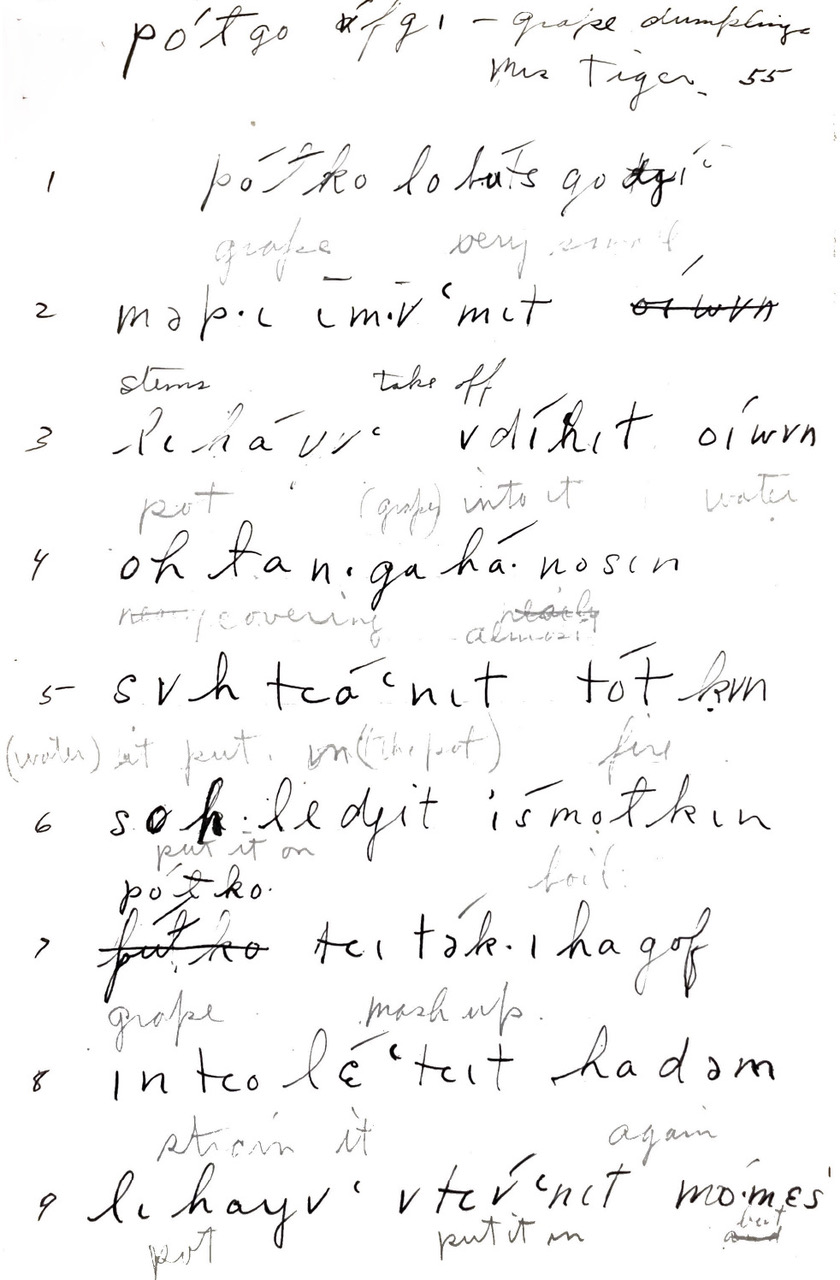 pó't go afgi – grape dumplings
Mrs Tiger. 55
1 pót́ko lobuts go
grape very small
2 məp·ɩ ɩ̄m·v̄ ʿmɩt oíwvn
stems take off
3 lɩháyvʿ vdíhɩt oíwvn
pot (grape) into it water
4 oh tan·gahá·nosɩn
covering almost
5 svh tcáʿnɩt tótkvn
(water) it put. on (the pot) fire
6 soh·ledjit ísmotkɩn
put it on boil.
pótko·
7 putko tcɩ tə́k·ɩhagof
grape mash up.
8 ɩn tco lɛ́ʿtcɩt hadəm
strain it again
9 lɩhayvʿ vtcv́ʿnɩt mó·mɛs
pot put it in but